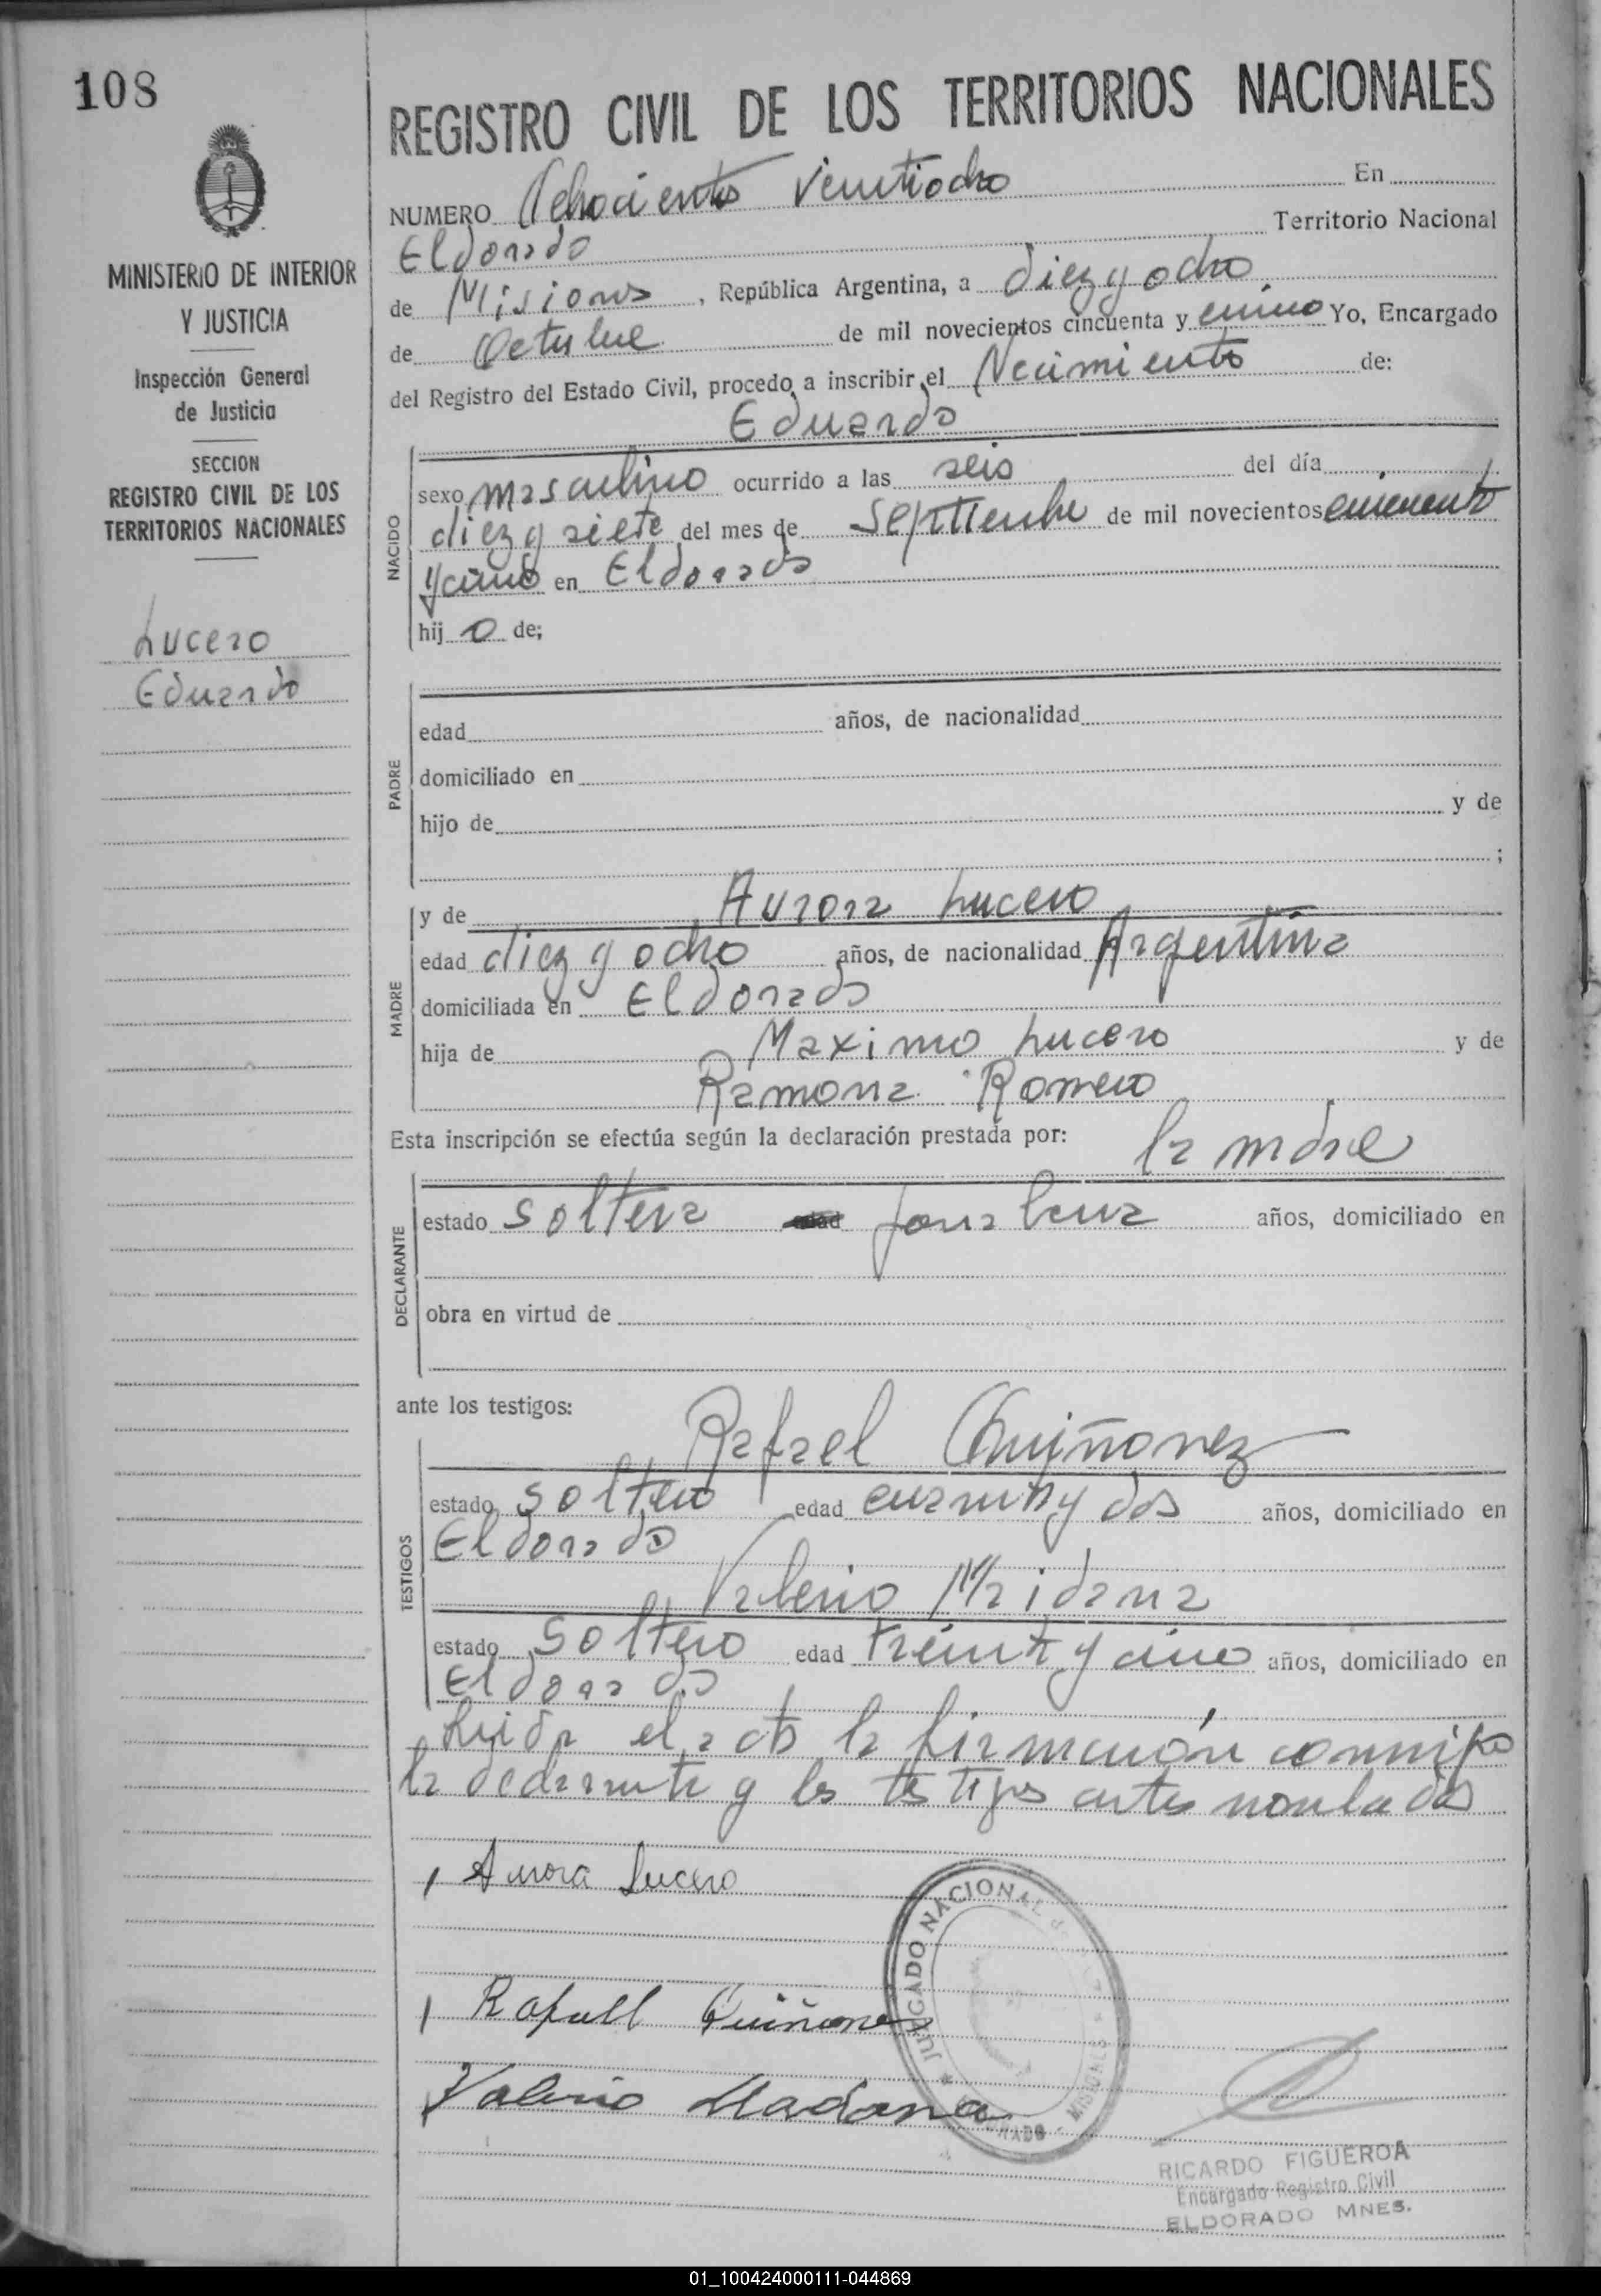 108
MINISTERIO DE INTERIOR
Y JUSTICIA
Inspección General
de Justicia
SECCION
REGISTRO CIVIL DE LOS
TERRITORIOS NACIONALES
Lucero
Eduardo
REGISTRO CIVIL DE LOS TERRITORIOS NACIONALES
NUMERO Ochocientos Veintiocho En
Eldorado Territorio Nacional
de Misiones, República Argentina, a diez y ocho
de Octubre de mil novecientos cincuenta y cinco Yo, Encargado
del Registro del Estado Civil, procedo a inscribir el Nacimiento de:
Eduardo
NACIDO
sexo masculino ocurrido a las seis del día
diez y siete del mes de Septiembre de mil novecientos cincuenta
y cinco en Eldorado
hij o de;
PADRE
edad años, de nacionalidad
domiciliado en
hijo de y de
;
MADRE
y de Aurora Lucero
edad diez y ocho años, de nacionalidad Argentina
domiciliada en Eldorado
hija de Maximo Lucero y de
Ramona Romero
Esta inscripción se efectúa según la declaración prestada por: la madre
DECLARANTE
estado soltera años, domiciliado en
obra en virtud de
ante los testigos:
TESTIGOS
Rafael Quiñonez
estado soltero edad cuarenta y dos años, domiciliado en
Eldorado
Valerio Maidana
estado Soltero edad treinta y cinco años, domiciliado en
Eldorado
Leida el acta la firmarón conmigo
la declarante y los testigos antes nombrados
Aurora Lucero
Rafaell Quiñones
Valerio Madana
JUZGADO NACIONAL
ELDORADO - MISIONES
RICARDO FIGUEROA
Encargado Registro Civil
ELDORADO MNES.
01_100424000111-044869